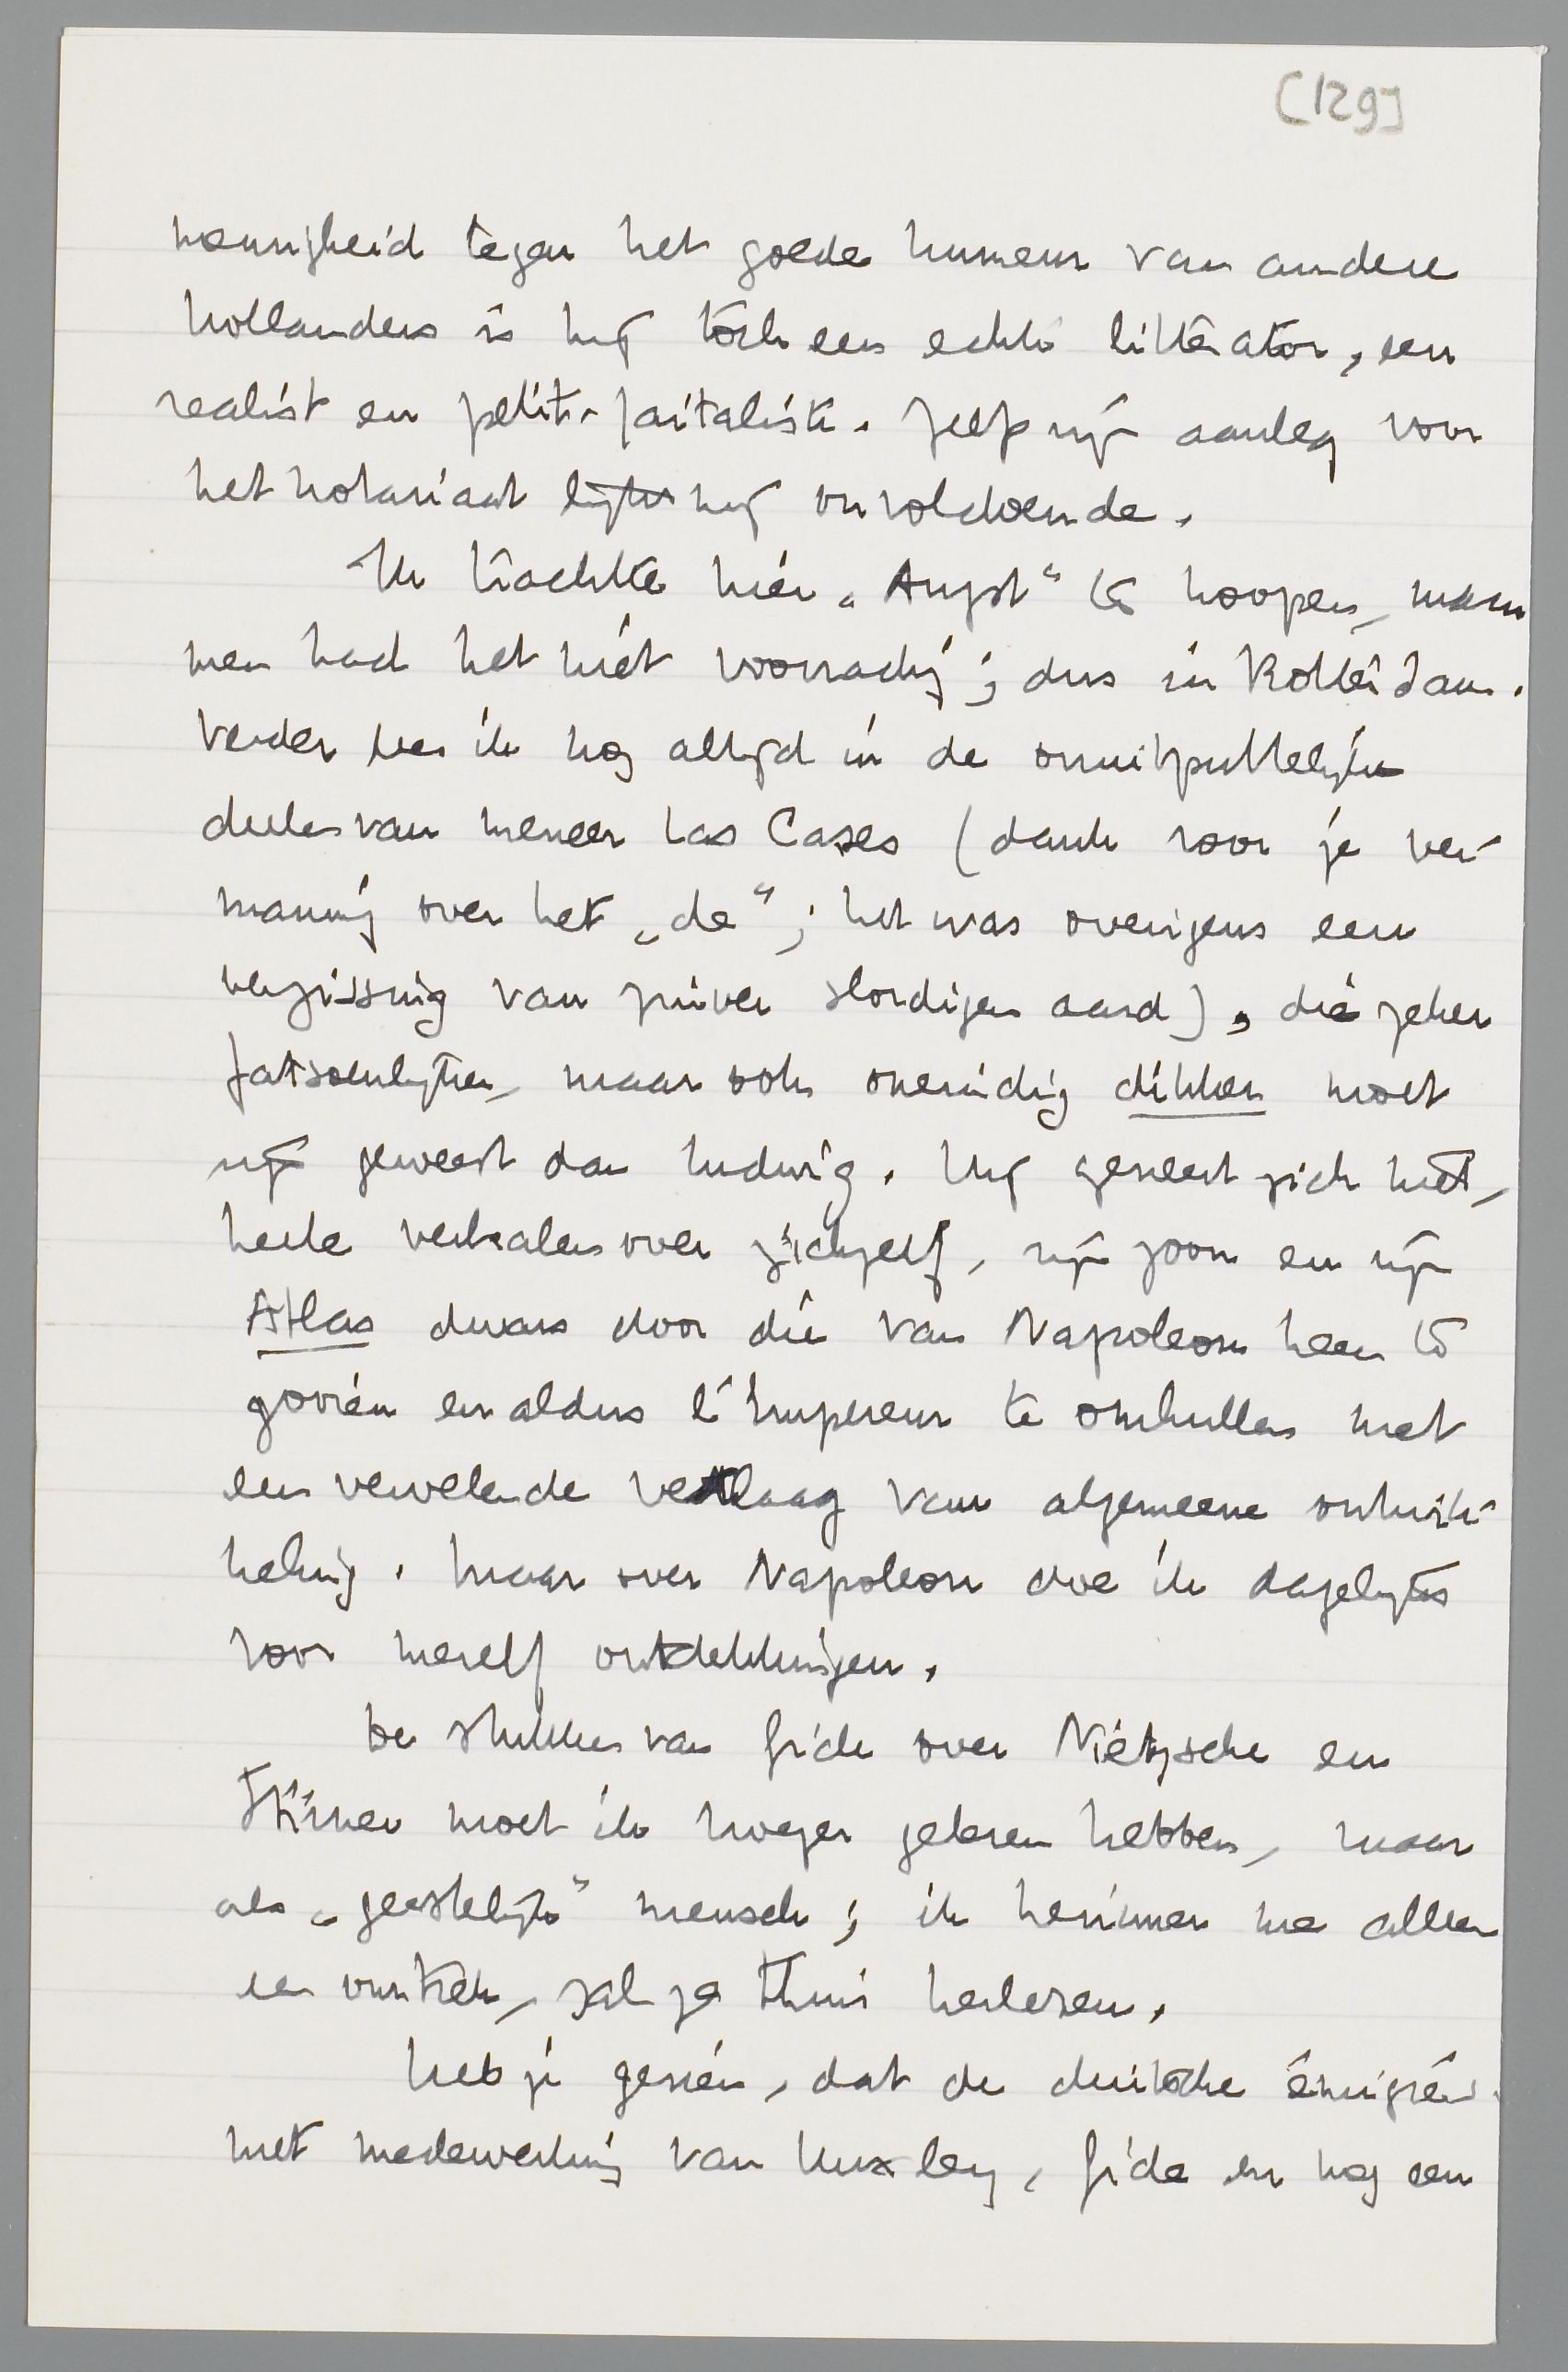 [129]
nerigheid tegen het goede humeur van andere
hollanders is hij tòch een echte litterator, een
realist en petit-faitaliste. Zelfs zijn aanleg voor
het notariaat lijkt mij onvoldoende.
Ik trachtte hier „Angst" te koopen, maar
men had het niet voorradig; dus in Rotterdam.
Verder lees ik nog altijd in de onuitputtelijke
deelen van meneer Las Cases (dank voor je ver-
maning over het „de"; het was overigens een
vergissing van zuiver slordigen aard), die zeker
fatsoenlijker, maar ook oneindig dikker moet
zijn geweest dan Ludwig. Hij geneert zich niet,
heele verhalen over zichzelf, zijn zoon en zijn
Atlas dwars door die van Napoleon heen te
gooien en aldus l'Empereur te omhullen met
een vervelende vetlaag van algemeene ontwik-
keling. Maar over Napoleon doe ik dagelijks
voor mezelf ontdekkingen.
De stukken van Gide over Nietzsche en
Stirner moet ik vroeger gelezen hebben, maar
als „geestelijk" mensch; ik herinner me alleen
een omtrek, zal ze thuis herlezen.
Heb je gezien, dat de duitsche émigrés
met medewerking van Huxley, Gide en nog een